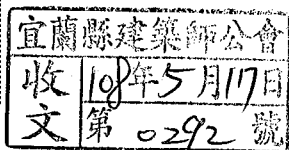 宜蘭縣建築師公會
收文
108年5月17日
第0292號